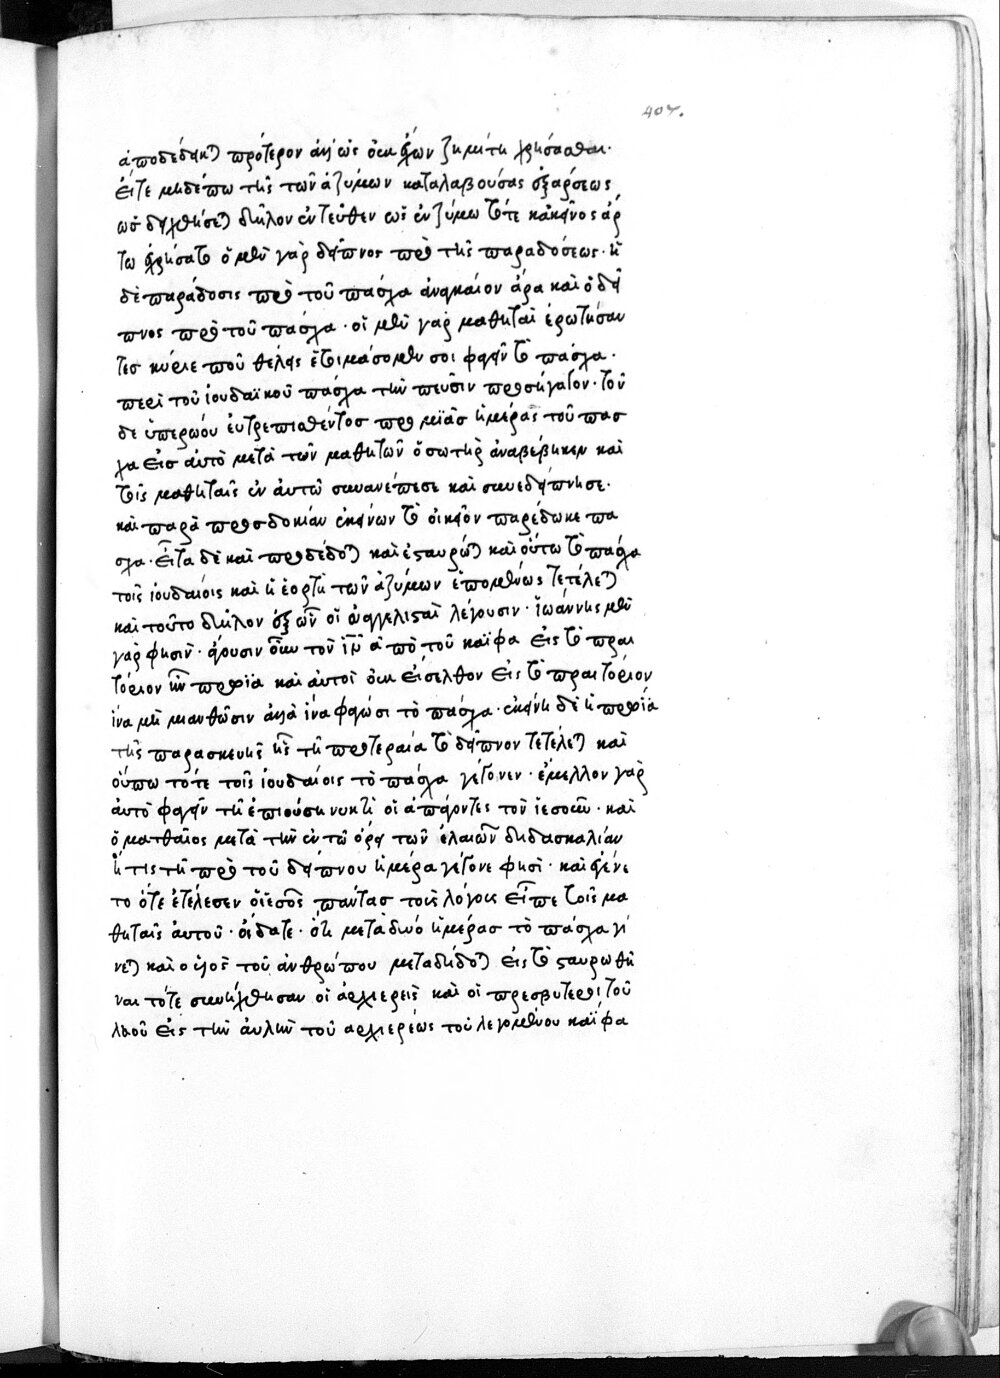 407.
ἀποδέδεικται πρότερον ἄλλως οὐκ ἔχων ζημίτη χρήσασθαι·
εἴτε μηδέπω τῆς τῶν ἀζύμων καταλαβούσας ἐξαρσεως
ὡς δειχθήσεται δῆλον ἐντεῦθεν ὡς ἐνζύμω τότε κἀκεῖνος ἄρ
τω ἐχρήσατο ὁ μὲν γὰρ δεῖπνος πρὸ τῆς παραδόσεως· ἡ
δὲ παράδοσις πρὸ τοῦ πάσχα ἀναγκαίον ἄρα καὶ ὁ δεῖ
πνος πρὸ τοῦ πάσχα· οἱ μὲν γὰρ μαθηταὶ ἐρωτήσαν
τες κύριε ποῦ θέλεις ἑτοιμάσομεν σοι φαγεῖν τὸ πάσχα·
περὶ τοῦ ἰουδαϊκοῦ πάσχα τὴν πεῦσιν προσήγαγον· τοῦ
δε ὑπερώου εὐτρεπισθέντος πρὸ μιᾶς ἡμέρας τοῦ πασ
χα εἰς αὐτὸ μετὰ τῶν μαθητῶν ὁ σωτὴρ ἀναβέβηκεν καὶ
τοῖς μαθηταῖς ἐν αὐτῶ συνανέπεσε καὶ συνεδείπνησε·
καὶ παρὰ προσδοκίαν ἐκείνων τὸ οἰκεῖον παρέδωκε πα
σχα· εἶτα δὲ καὶ προδέδοται καὶ ἐσταυρώται καὶ οὕτω τὸ πάσχα
τοῖς ἰουδαίοις καὶ ἡ ἑορτὴ τῶν ἀζύμων ἑπομένως τετέλεται
καὶ τοῦτο δῆλον ἐξ ὧν οἱ εὐαγγελισταὶ λέγουσιν· ἰωάννης μὲν
γάρ φησιν· ἄγουσιν οὖν τὸν ἰῦ ἀπὸ τοῦ καϊφα εἰς τὸ πραι
τόριον ἦν πρωΐα καὶ αὐτοὶ οὐκ εἰσελθον εἰς τὸ πραιτόριον
ἵνα μὴ μιανθῶσιν ἀλλὰ ἵνα φάγωσι τὸ πάσχα· ἐκείνη δὲ ἡ πρωΐα
τῆς παρασκευῆς ἧς τῆ προτεραία τὸ δεῖπνον τετέλεται καὶ
οὔπω τότε τοῖς ἰουδαίοις τὸ πάσχα γέγονεν· ἔμελλον γὰρ
αὐτὸ φαγεῖν τῆ ἐπιούση νυκτὶ οἱ ἀπάγοντες τὸν ἰησοῦν· καὶ
ὁ ματθαῖος μετὰ τὴν ἐν τῶ ὄρει τῶν ἐλαιῶν διδασκαλίαν
ἥτις τῆ πρὸ τοῦ δείπνου ἡμέρα γέγονε φησὶ· καὶ ἐγένε
το ὅτε ἐτέλεσεν ὁ ἰησοῦς πάντας τοὺς λόγους εἶπε τοῖς μα
θηταῖς αὐτοῦ· οἴδατε· ὅτι μετὰ δυό ἡμέρας τὸ πάσχα γί
νεται καὶ ο υἱὸς τοῦ ἀνθρώπου παραδίδοται εἰς τὸ σταυρωθῆ
ναι τότε συνήχθησαν οἱ ἀρχιερεῖς καὶ οἱ πρεσβυτεροι τοῦ
λαοῦ εἰς τὴν αὐλὴν τοῦ αρχιερέως τοῦ λεγομένου καϊφα